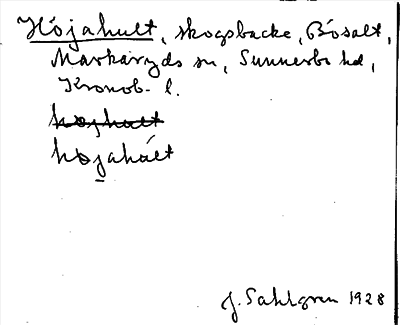 Höjahult, skogsbacke, Bösalt,
Markaryds sn, Sunnerbo hd,
Kronob. l.
hojhult
höjahált
J. Sahlgren 1928